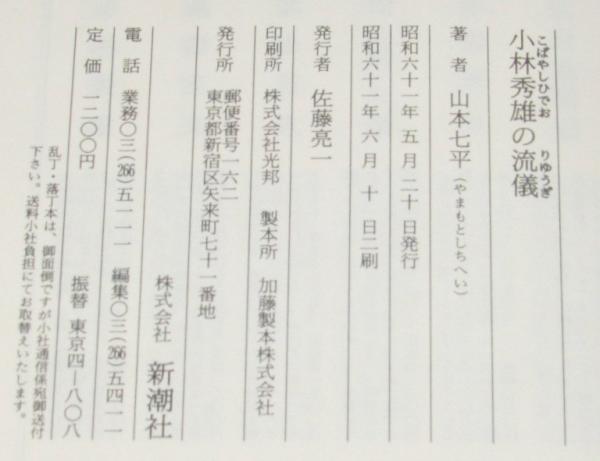 こばやしひでお りゆうぎ
小林秀雄の流儀
著者 山本七平(やまもとしちへい)
昭和六十一年 五月 二十日発行
昭和六十一年 六月 十日二刷
発行者 佐藤亮一
印刷所 株式会社光邦 製本所 加藤製本株式会社
発行所 郵便番号一六二
東京都新宿区矢来町七十一番地
株式会社 新潮社
電話 業務〇三(266)五一一一 編集〇三(266)五四一一
定価 一二〇〇円 振替 東京四―八〇八
乱丁・落丁本は、御面倒ですが小社通信係宛御送付
下さい。送料小社負担にてお取替えいたします。